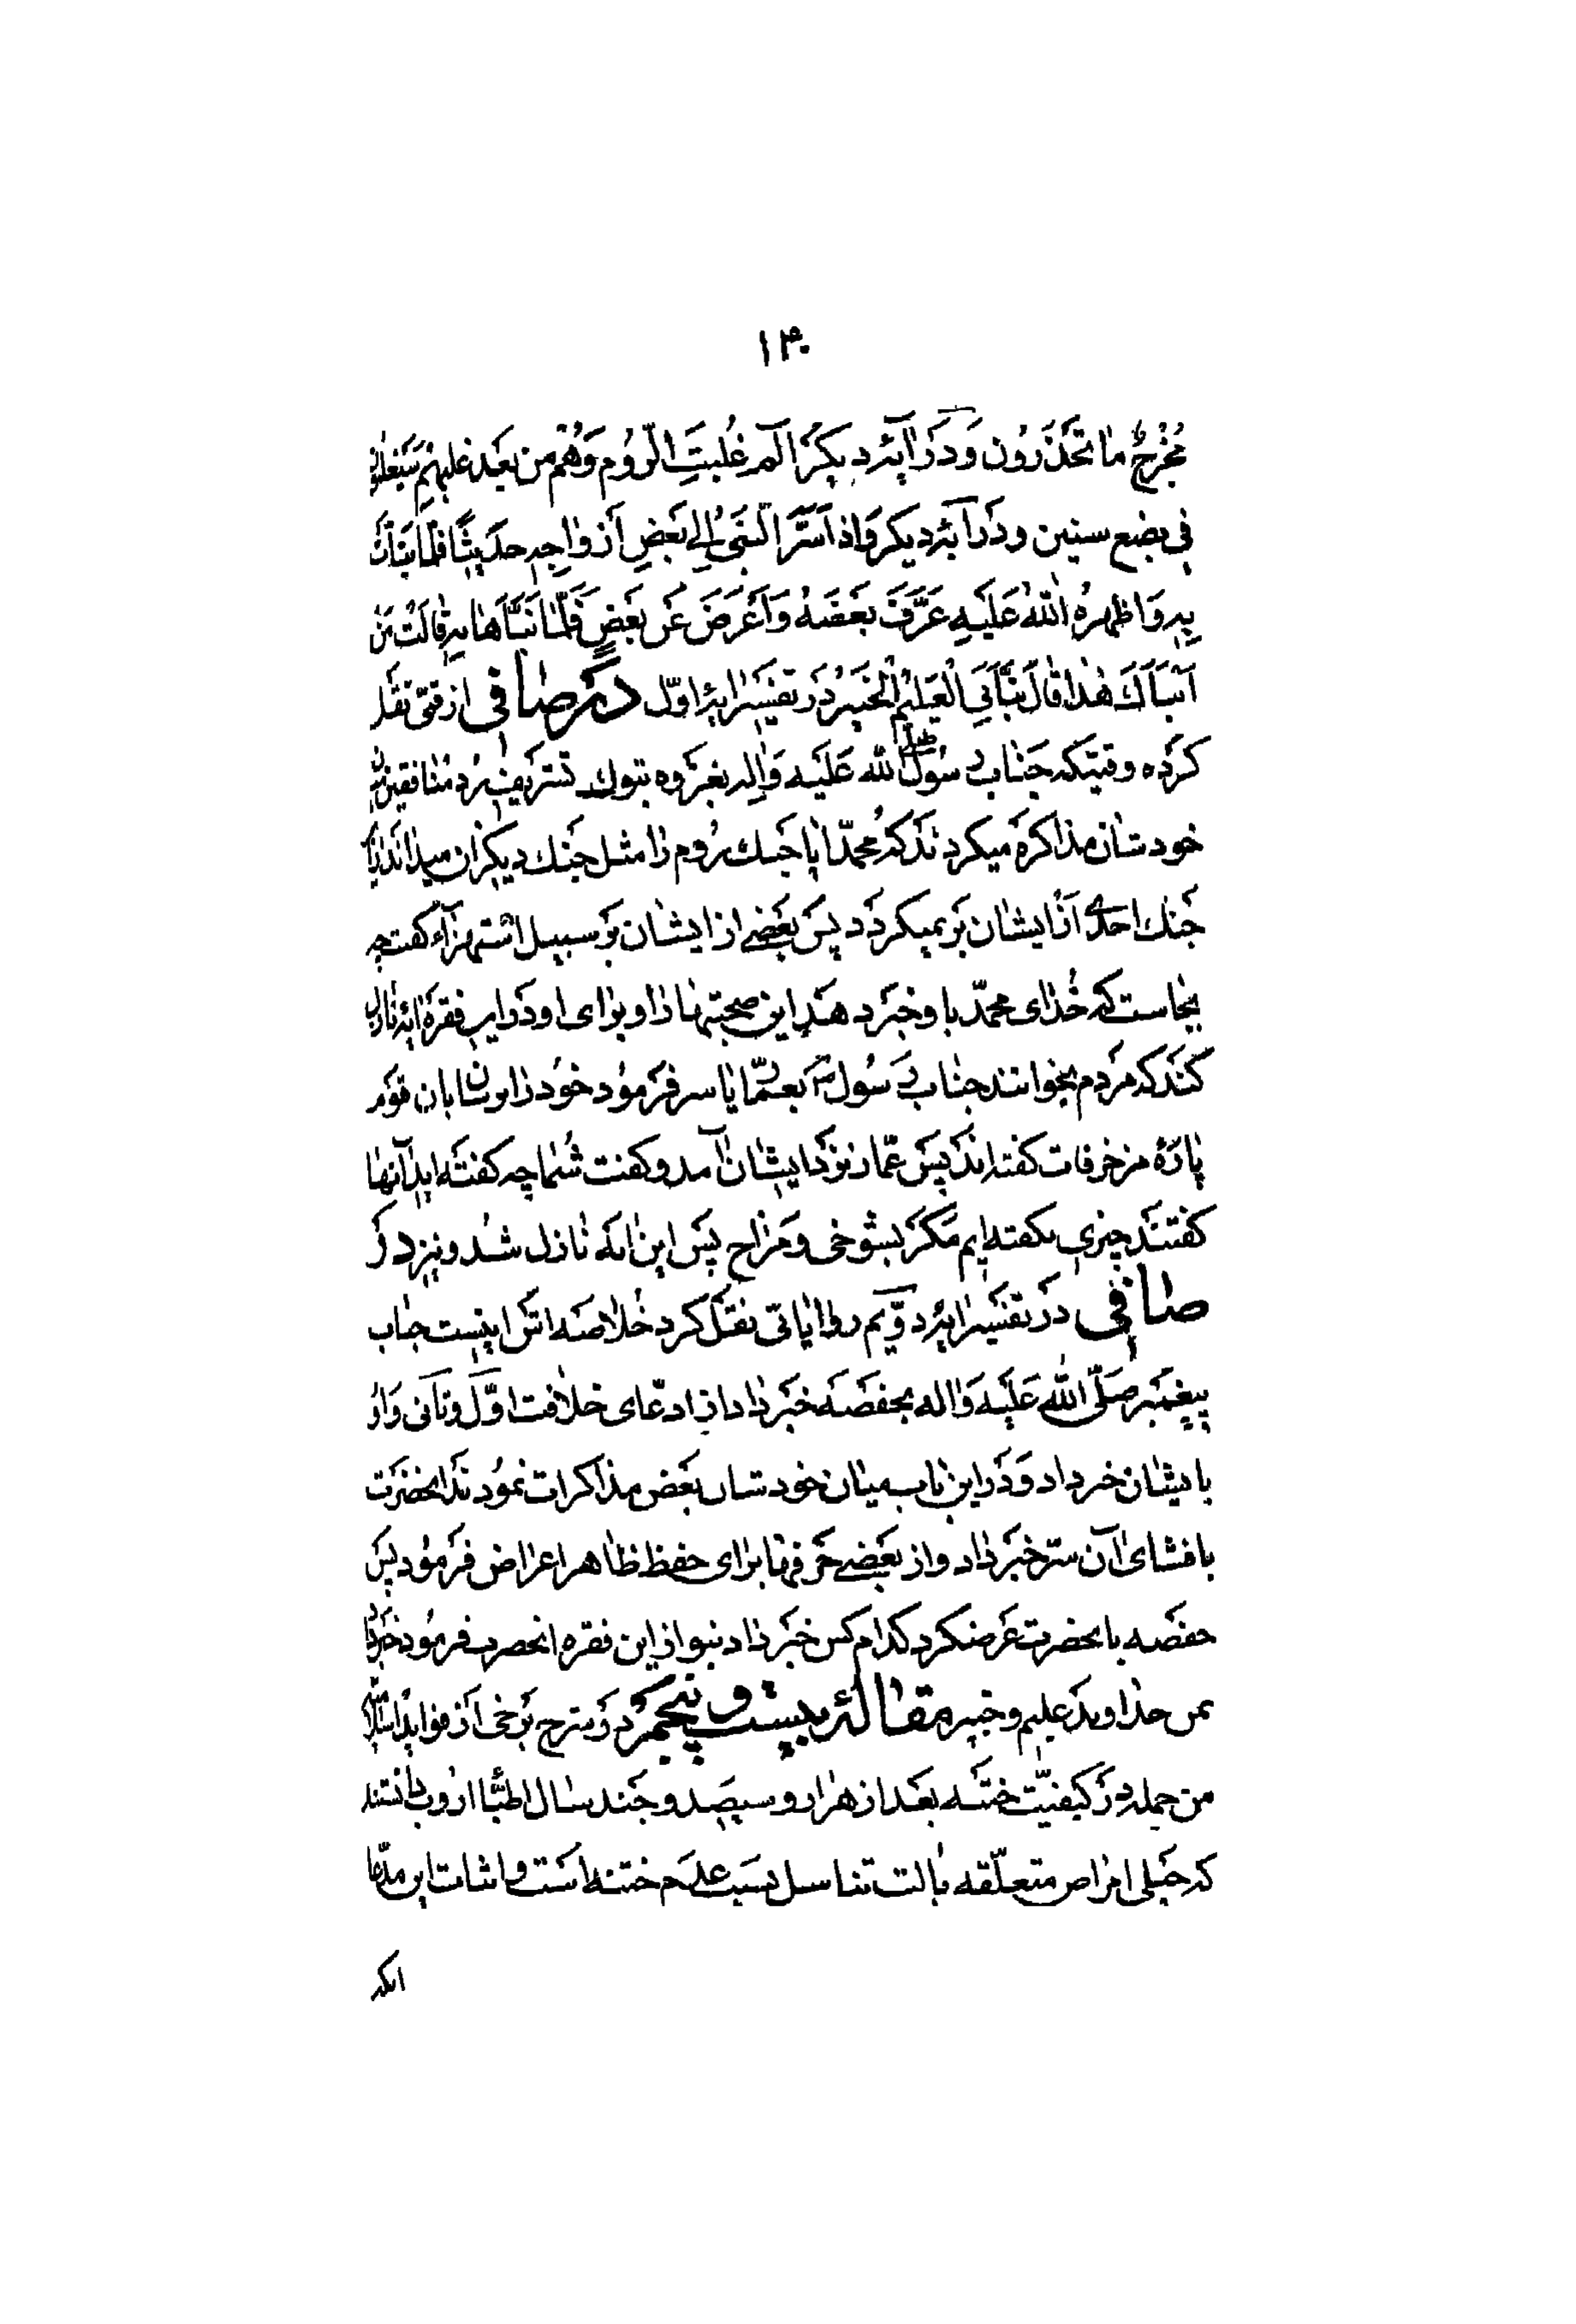 ۱۳۰
مُخْرِجٌ مٰا تَحْذَرُون وَ دَر آیهٔ دیکَر الٓمٓ غُلِبَتِ الرُّوُم وَهُم مِن بَعَد غلبهِم سَیَغلِبُون
فی بضع سنین و دَر آیهٔ دیکر وَاِذ اَسَرَّ النَّبیُّ اِلی بَعَضِ اَزواجِهِ حدیثًا فلمّا نَبَّأت
بِهِ وَاظهرهُ اللّٰهُ عَلَیهِ عَرَّفَ بعَضَهُ وَاَعْرَضَ عَن بَعَضٍ فَلَمّٰا نَبَّأهٰا بِهِ قٰالَتْ مَن
اَنْبَاَكَ هٰذا قٰالَ نَبَّأنِیَ الْعَلیٖمُ الْخَبیٖر دَر تفسیر ایهٔ اوّل در صٰافی از قمّی نقل
کرَده وقتیکه جَنٰاب رسُول صلی الله علَیه وَاٰله بغزَوه تبوك تشریف بُرد مُنٰافقین
خودشان مذاکرَه میکردند که محمّد ایا جَنك رُوم را مثل جنك دیکران میداند
جَنك احدی اَز ایشٰان بَر نمیکردَد پس بَعضی از ایشٰان بَر سبیل استهزآء کفت چه
بجاست که خُدای محمّد باو خبَر دهَد این صحبتها را و برٰای او دَر این فقرَه ایهٔ نازل
کنَد که مَردم بخوانند جنٰاب رسُول ص بعمّار یاسر فرَموُد خوُد را برسان بان قوَم
پارَهٔ مزخرفات کفته‌اند پس عمّار نزد ایشٰان آمد و کفت شُمٰا چه کفتَه‌اید آنهٰا
کفتنَد چیزی نکفته‌ایم مَکَر بشوخی و مَزٰاح پسَ این ایَه نٰازل شُد و نیزَ در
صٰافی دَر تفسیَر ایهٔ دوّیم روٰایٰاتی نقَل کرد خُلاصَه اش اینست جناب
پیغمبَر صَلّی اللّٰه عَلَیه وَاٰله بحفصَه خبَر دٰاد از ادّعای خلٰافت اوّل و ثانی وَ اوُ
بایشٰان خبر داد وَ دَر این بٰاب میٰان خودشان بَعض مذاکرات نموُدند انحضرَت
بافشٰای آن سرّ خبرَ دٰاد و از بَعضی حرَفهٰا برٰای حفظ ظٰاهر اعرٰاض فرَموُد پسَ
حفصَه بانحضرت عرَضکرد کدام کس خبَر دٰاد بتو از این فقره انحضرت فرموُد خبرداد
بمن خداوند علیم و خبیر مقٰالهٔ بیست و پنجم دَر شرح بَرخی اَز فوٰاید اسلام
من جمله دَر کیفیّت ختنَه بعَد از هزار و سیصَد و چند سٰال اطبّا اروپ دانستند
که خیَلی امرٰاض متعلّقه بٰالت تناسل بسَبب عدَم ختنه است و اثبات این مدّعا
انکه